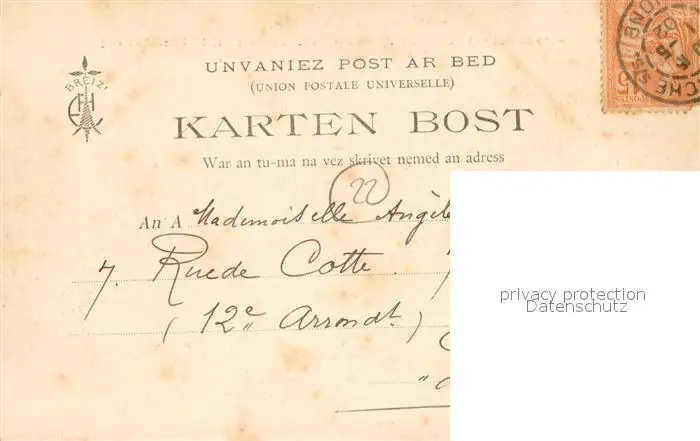 BREIZ!
UNVANIEZ POST AR BED
(UNION POSTALE UNIVERSELLE)
KARTEN BOST
War an tu-ma na vez skrivet nemed an adress
22
An A Mademoiselle Angèle
7. Rue de Cotte.
(12e Arrondt)
privacy protection
Datenschutz
15
POSTES
02